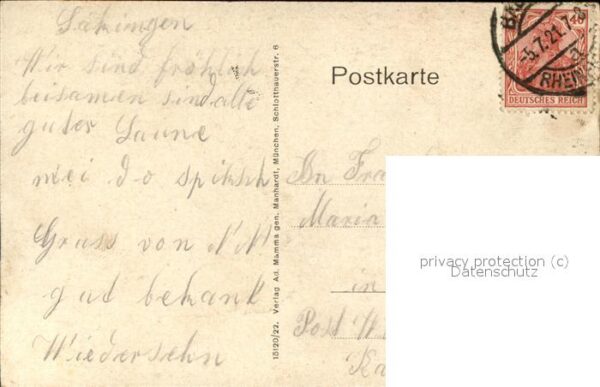 Säkingen
Wir sind fröhlich
beisamen sind alle
guter Laune
mei do spitsch
Gruss von N N
gut bekant
Wiedersehn
15120/22. Verlag Ad. Mamma gen. Manhardt, München, Schlotthauerstr. 6
Postkarte
5.7.21.7-8
RHEIN
DEUTSCHES REICH
An Fra
Maria
in
Post
privacy protection (c)
Datenschutz